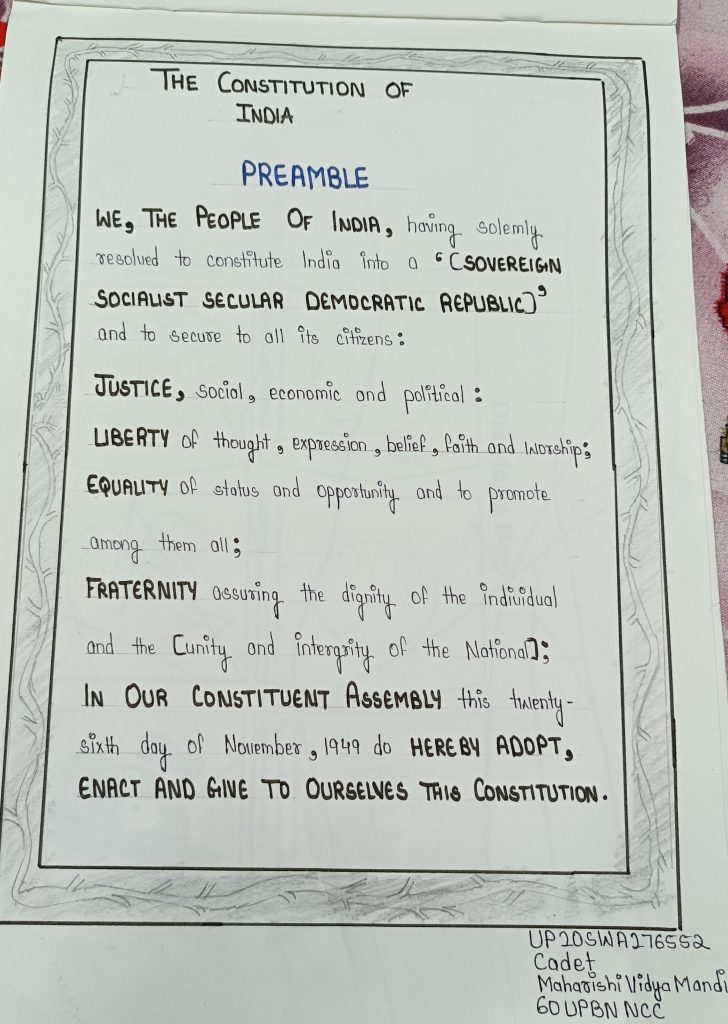 THE CONSTITUTION OF
INDIA
PREAMBLE
WE, THE PEOPLE OF INDIA, having solemly
resolved to constitute India into a "[SOVEREIGN
SOCIALIST SECULAR DEMOCRATIC REPUBLIC]"
and to secure to all its citizens:
JUSTICE, social, economic and political:
LIBERTY of thought, expression, belief, faith and worship;
EQUALITY of status and opportunity and to promote
among them all;
FRATERNITY assuring the dignity of the individual
and the [unity and intergrity of the National];
IN OUR CONSTITUENT ASSEMBLY this twenty-
sixth day of November, 1949 do HEREBY ADOPT,
ENACT AND GIVE TO OURSELVES THIS CONSTITUTION.
UP20SWA276552
Cadet
Maharishi Vidya Mandi
60 UPBN NCC